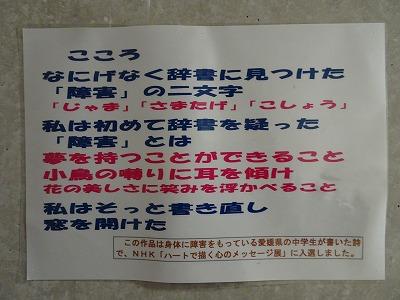 こころ
なにげなく辞書に見つけた
「障害」の二文字
「じゃま」「さまたげ」「こしょう」
私は初めて辞書を疑った
「障害」とは
夢を持つことができること
小鳥の囀りに耳を傾け
花の美しさに笑みを浮かべること
私はそっと書き直し
窓を開けた
この作品は身体に障害をもっている愛媛県の中学生が書いた詩
で、NHK「ハートで描く心のメッセージ展」に入選しました。